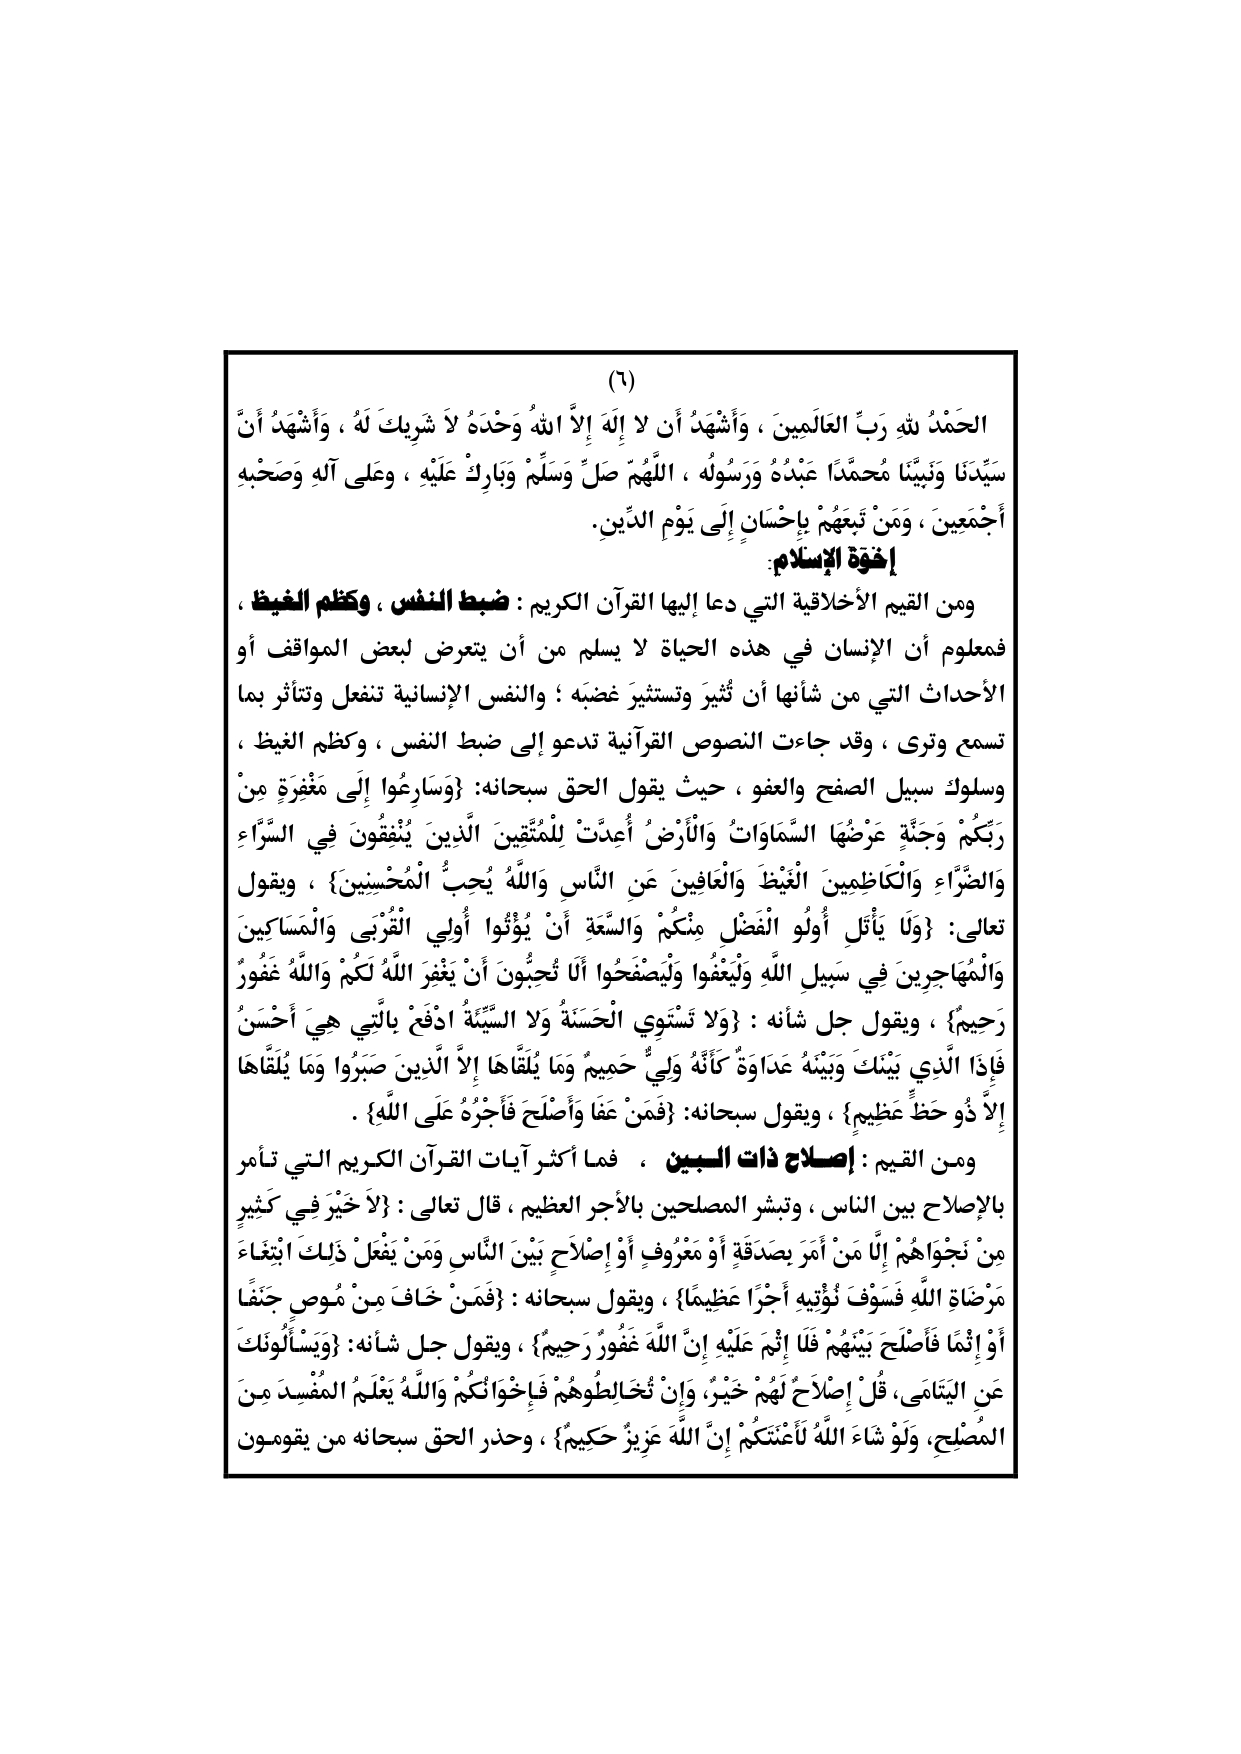 (٦)
الحَمْدُ للهِ رَبِّ العَالَمِينَ ، وَأَشْهَدُ أَن لا إِلَهَ إِلاَّ اللهُ وَحْدَهُ لاَ شَرِيكَ لَهُ ، وَأَشْهَدُ أَنَّ
سَيِّدَنَا وَنَبِيَّنَا مُحمَّدًا عَبْدُهُ وَرَسُولُه ، اللَّهُمّ صَلِّ وَسَلِّمْ وَبَارِكْ عَلَيْهِ ، وعَلى آلهِ وَصَحْبهِ
أَجْمَعِينَ ، وَمَنْ تَبِعَهُمْ بِإِحْسَانٍ إِلَى يَوْمِ الدِّينِ.
إخوة الإسلام:
ومن القيم الأخلاقية التي دعا إليها القرآن الكريم : ضبط النفس ، وكظم الغيظ ،
فمعلوم أن الإنسان في هذه الحياة لا يسلم من أن يتعرض لبعض المواقف أو
الأحداث التي من شأنها أن تُثيرَ وتستثيرَ غضبَه ؛ والنفس الإنسانية تنفعل وتتأثر بما
تسمع وترى ، وقد جاءت النصوص القرآنية تدعو إلى ضبط النفس ، وكظم الغيظ ،
وسلوك سبيل الصفح والعفو ، حيث يقول الحق سبحانه: {وَسَارِعُوا إِلَى مَغْفِرَةٍ مِنْ
رَبِّكُمْ وَجَنَّةٍ عَرْضُهَا السَّمَاوَاتُ وَالْأَرْضُ أُعِدَّتْ لِلْمُتَّقِينَ الَّذِينَ يُنْفِقُونَ فِي السَّرَّاءِ
وَالضَّرَّاءِ وَالْكَاظِمِينَ الْغَيْظَ وَالْعَافِينَ عَنِ النَّاسِ وَاللَّهُ يُحِبُّ الْمُحْسِنِينَ} ، ويقول
تعالى: {وَلَا يَأْتَلِ أُولُو الْفَضْلِ مِنْكُمْ وَالسَّعَةِ أَنْ يُؤْتُوا أُولِي الْقُرْبَى وَالْمَسَاكِينَ
وَالْمُهَاجِرِينَ فِي سَبِيلِ اللَّهِ وَلْيَعْفُوا وَلْيَصْفَحُوا أَلَا تُحِبُّونَ أَنْ يَغْفِرَ اللَّهُ لَكُمْ وَاللَّهُ غَفُورٌ
رَحِيمٌ} ، ويقول جل شأنه : {وَلا تَسْتَوِي الْحَسَنَةُ وَلا السَّيِّئَةُ ادْفَعْ بِالَّتِي هِيَ أَحْسَنُ
فَإِذَا الَّذِي بَيْنَكَ وَبَيْنَهُ عَدَاوَةٌ كَأَنَّهُ وَلِيٌّ حَمِيمٌ وَمَا يُلَقَّاهَا إِلاَّ الَّذِينَ صَبَرُوا وَمَا يُلَقَّاهَا
إِلاَّ ذُو حَظٍّ عَظِيمٍ} ، ويقول سبحانه: {فَمَنْ عَفَا وَأَصْلَحَ فَأَجْرُهُ عَلَى اللَّهِ} .
ومن القيم : إصلاح ذات البين ، فما أكثر آيات القرآن الكريم التي تأمر
بالإصلاح بين الناس ، وتبشر المصلحين بالأجر العظيم ، قال تعالى : {لاَ خَيْرَ فِي كَثِيرٍ
مِنْ نَجْوَاهُمْ إِلَّا مَنْ أَمَرَ بِصَدَقَةٍ أَوْ مَعْرُوفٍ أَوْ إِصْلاَحٍ بَيْنَ النَّاسِ وَمَنْ يَفْعَلْ ذَلِكَ ابْتِغَاءَ
مَرْضَاةِ اللَّهِ فَسَوْفَ نُؤْتِيهِ أَجْرًا عَظِيمًا} ، ويقول سبحانه : {فَمَنْ خَافَ مِنْ مُوصٍ جَنَفًا
أَوْ إِثْمًا فَأَصْلَحَ بَيْنَهُمْ فَلَا إِثْمَ عَلَيْهِ إِنَّ اللَّهَ غَفُورٌ رَحِيمٌ} ، ويقول جل شأنه: {وَيَسْأَلُونَكَ
عَنِ اليَتَامَى، قُلْ إِصْلاَحٌ لَهُمْ خَيْرٌ، وَإِنْ تُخَالِطُوهُمْ فَإِخْوَانُكُمْ وَاللَّهُ يَعْلَمُ المُفْسِدَ مِنَ
المُصْلِحِ، وَلَوْ شَاءَ اللَّهُ لَأَعْنَتَكُمْ إِنَّ اللَّهَ عَزِيزٌ حَكِيمٌ} ، وحذر الحق سبحانه من يقومون